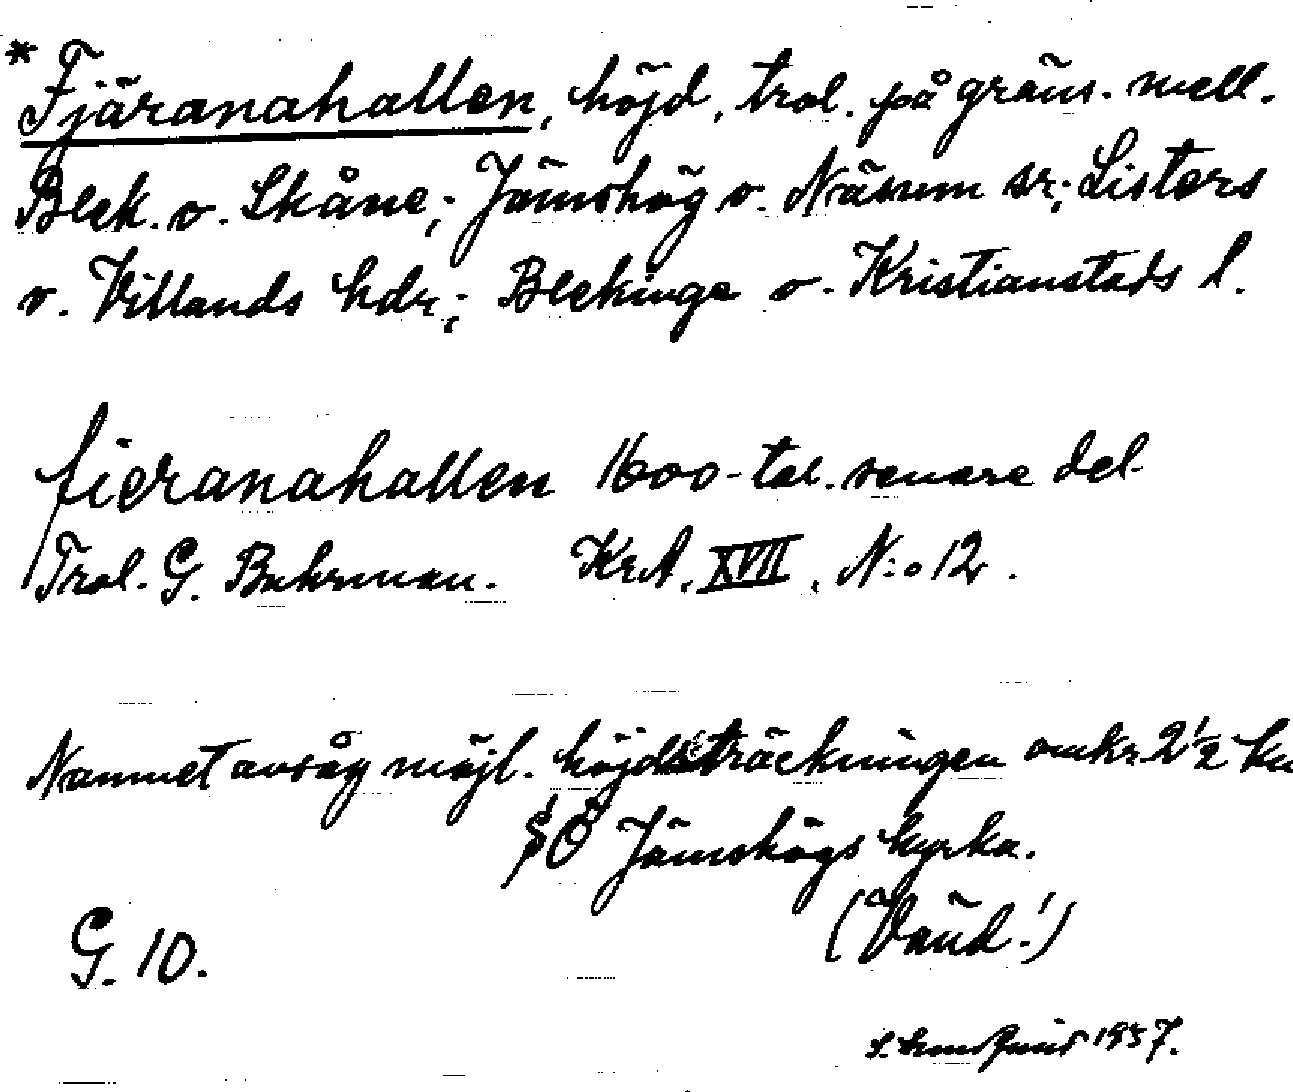 * Fjäranahallen, höjd, trol. på gräns. mell.
Blek. o. Skåne; Jämshög o. Näsum sr; Listers
o. Villands hdr; Blekinge o. Kristianstads l.
fieranahallen 1600-tal. senare del
Trol. G. Buhrman. KrA, XVII, N:o 12.
Namnet avsåg möjl. höjdsträckningen omkr. 2 1/2 km
SÖ Jämshögs kyrka.
(Vänd!)
G. 10.
1957.